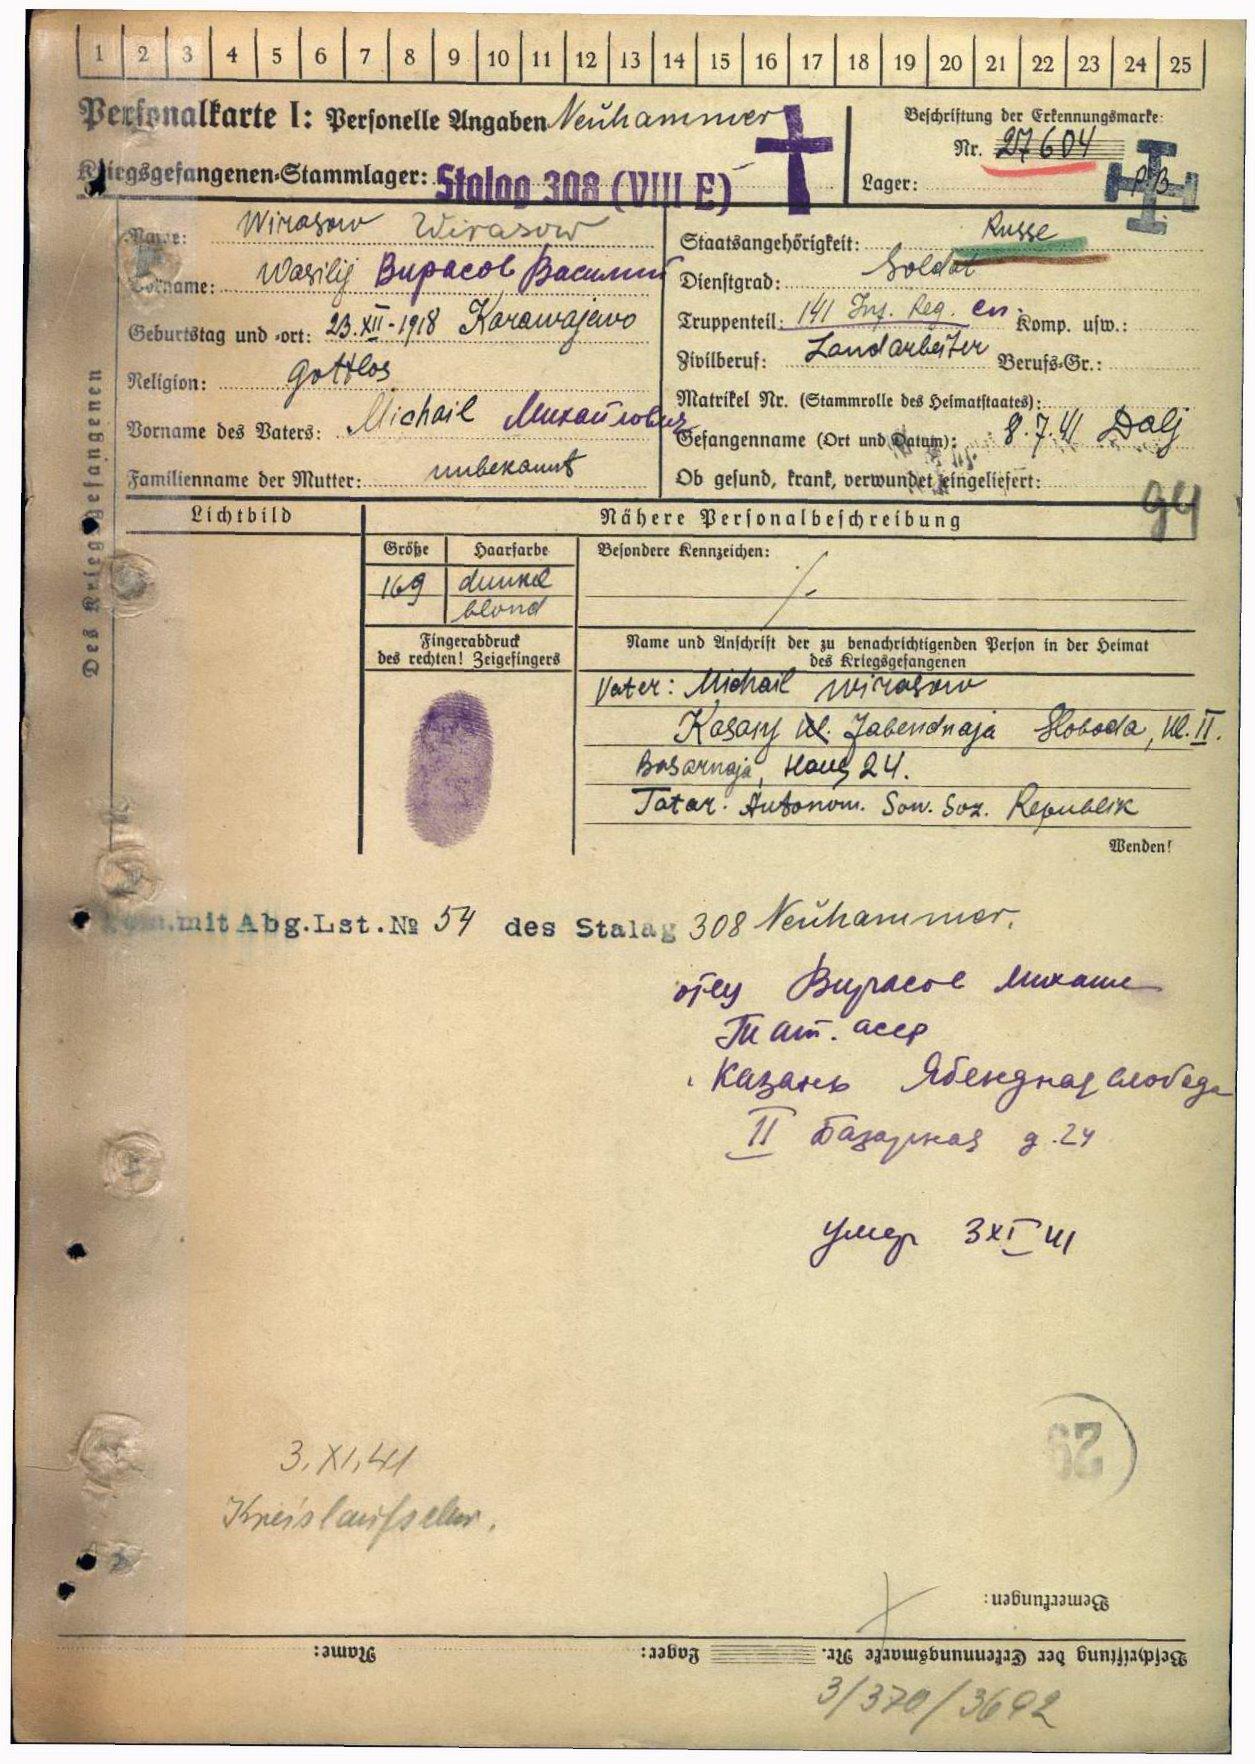 1 2 3 4 5 6 7 8 9 10 11 12 13 14 15 16 17 18 19 20 21 22 23 24 25
Personalkarte I: Personelle Angaben Neuhammer
Beschriftung der Erkennungsmarke:
Nr. 27604
Kriegsgefangenen-Stammlager: Stalag 308 (VIII E)
Lager:
Name: Wirasow Wirasow
Vorname: Wasilij Вирасов Василий
Geburtstag und -ort: 23.XII-1918 Karawajewo
Religion: Gottlos
Vorname des Vaters: Michail Михайлович
Familienname der Mutter: unbekannt
Staatsangehörigkeit: Russe
Dienstgrad: Soldat
Truppenteil: 141 Inf. Reg. сп. Komp. usw.:
Zivilberuf: Landarbeiter Berufs-Gr.:
Matrikel Nr. (Stammrolle des Heimatstaates):
Gefangenname (Ort und Datum): 8.7.41 Dalj
Ob gesund, krank, verwundet eingeliefert:
94
Des Kriegsgefangenen
Lichtbild
Nähere Personalbeschreibung
Größe Haarfarbe Besondere Kennzeichen:
169 dunkel
blond
Fingerabdruck
des rechten! Zeigefingers
Name und Anschrift der zu benachrichtigenden Person in der Heimat
des Kriegsgefangenen
Vater: Michail Wirasow
Kasanj Jabendnaja Sloboda, Ul. II.
Basarnaja, Haus 24.
Tatar. Autonom. Sow. Soz. Republik
Wenden!
mit Abg.Lst.№ 54 des Stalag 308 Neuhammer.
отец Вирасов Михаил
Тат. асср
Казань Ябендная слобода
II Базарная д. 24
умер 3 XI 41
3.XI.41
29
Bemerkungen:
Beschriftung der Erkennungsmarke Nr. Lager: Name:
3/370/3692